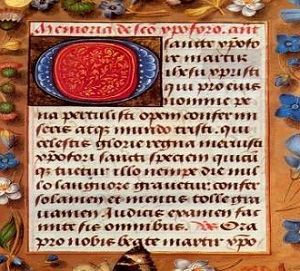 Memoria de sco xpoforo. ant
O sancte xpofo
re martir
ihesu xpristi
qui pro eius
nomine pe
na pertulisti opem confer mi
seris atq mundo tristi. qui
celestis glorie regna meruisti
xpofori sancti speciem quicū
q tuetur illo nempe die nul
lo languore gravetur: confer
solamen et mentis tolle gra
uamen Iudicis examen fac
mite sis omnibus. Ora
pro nobis beate martir xpo